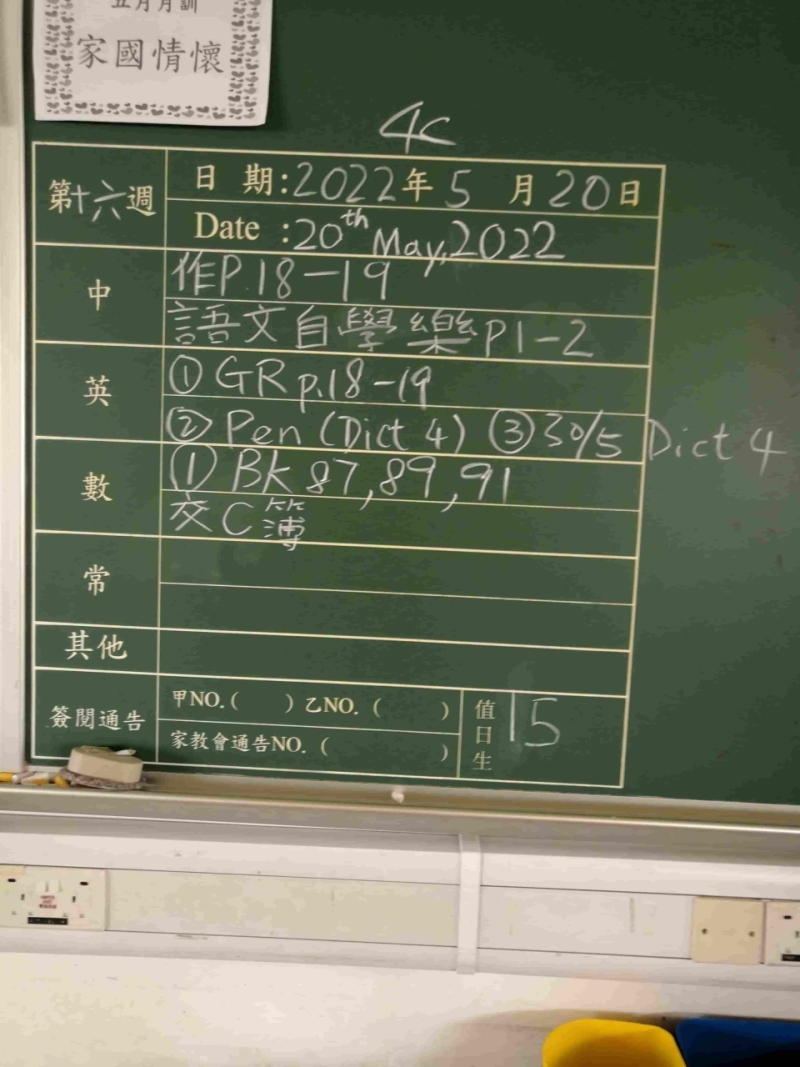 五月月訓
家國情懷
4C
第十六週
日 期:2022年5月20日
Date :20th May,2022
中
作P.18-19
語文自學樂P1-2
英
①GR p.18-19
②Pen (Dict 4) ③30/5 Dict 4
數
① BK 87,89,91
交C簿
常
其他
簽閱通告
甲NO.( )乙NO. ( )
家教會通告NO. ( )
值日生
15